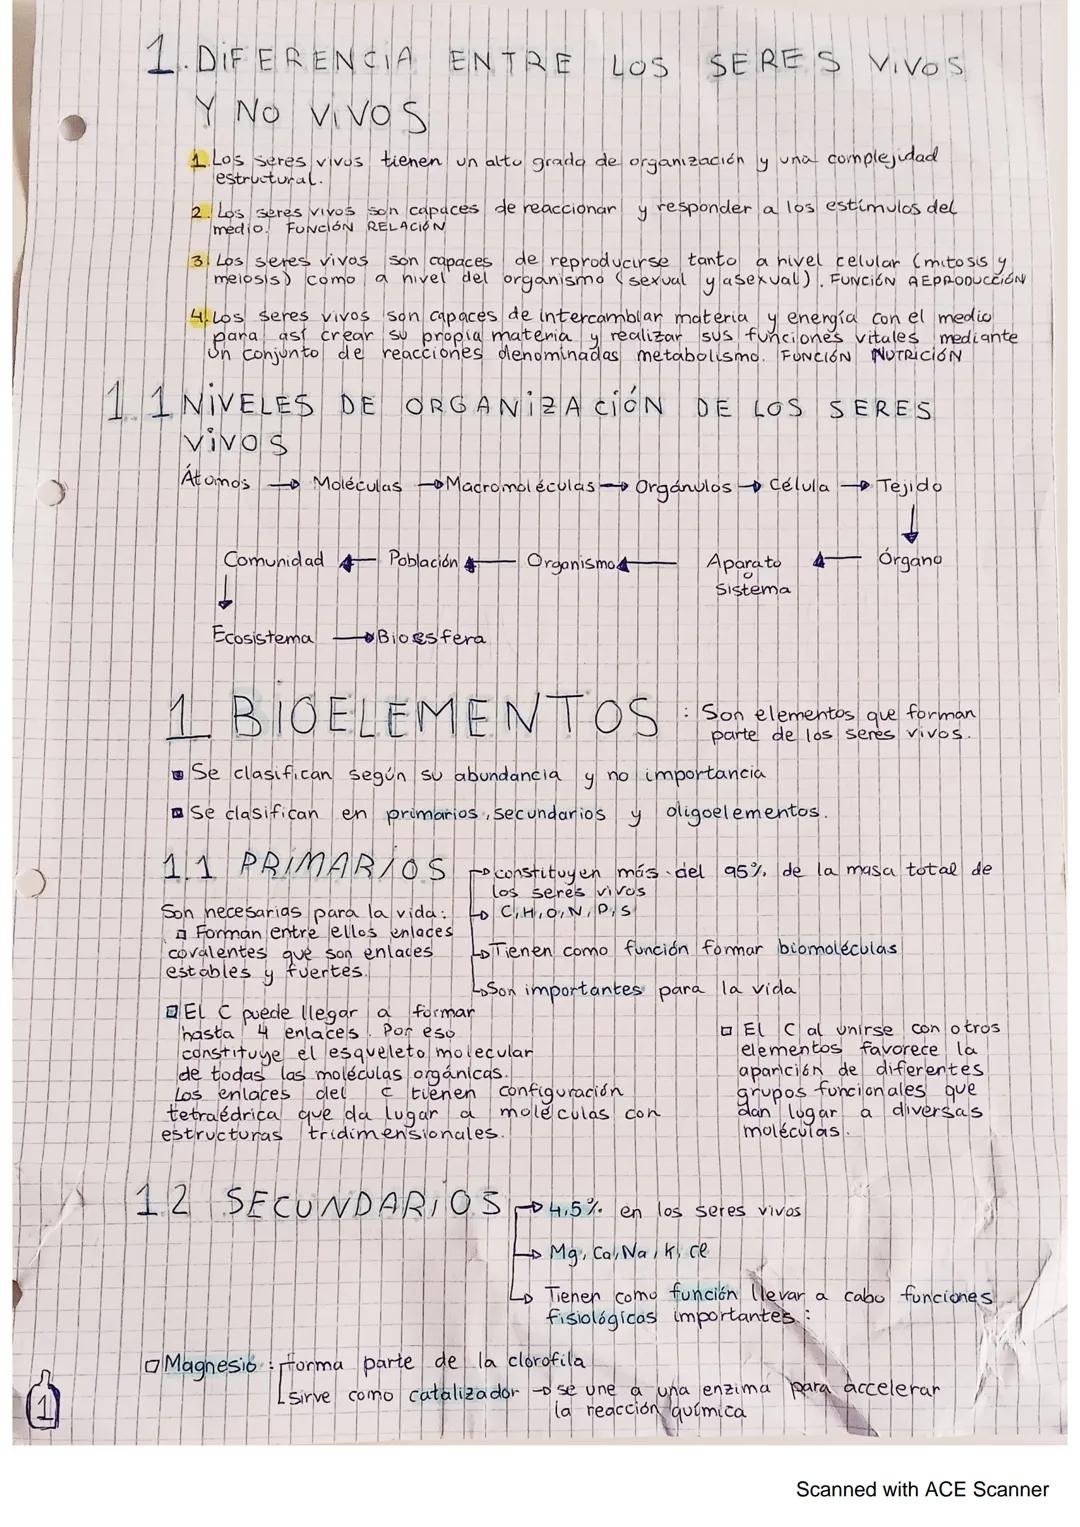 1. DIFERENCIA ENTRE LOS SERES VIVOS
Y NO VIVOS
1. Los seres vivos tienen un alto grado de organización y una complejidad
estructural.
2. Los seres vivos son capaces de reaccionar y responder a los estímulos del
medio. FUNCIÓN RELACIÓN
3. Los seres vivos son capaces de reproducirse tanto a nivel celular (mitosis y
meiosis) como a nivel del organismo (sexual y asexual). FUNCIÓN REPRODUCCIÓN
4. Los seres vivos son capaces de intercambiar materia y energía con el medio
para así crear su propia materia y realizar sus funciones vitales mediante
un conjunto de reacciones denominadas metabolismo. FUNCIÓN NUTRICIÓN
1.1 NIVELES DE ORGANIZACIÓN DE LOS SERES
VIVOS
Átomos → Moléculas → Macromoléculas → Orgánulos → Célula → Tejido
↓
Comunidad ← Población ← Organismo ← Aparato ← Órgano
o
Sistema
↓
Ecosistema → Bioesfera
1 BIOELEMENTOS : Son elementos que forman
parte de los seres vivos.
Se clasifican según su abundancia y no importancia
Se clasifican en primarios, secundarios y oligoelementos.
1.1 PRIMARIOS → constituyen más del 95% de la masa total de
los seres vivos
Son necesarias para la vida: → C, H, O, N, P, S
Forman entre ellos enlaces
covalentes que son enlaces → Tienen como función formar biomoléculas
estables y fuertes.
→ Son importantes para la vida
El C puede llegar a formar
hasta 4 enlaces. Por eso
constituye el esqueleto molecular
de todas las moléculas orgánicas.
Los enlaces del C tienen configuración
tetraédrica que da lugar a moléculas con
estructuras tridimensionales.
El C al unirse con otros
elementos favorece la
aparición de diferentes
grupos funcionales que
dan lugar a diversas
moléculas.
1.2 SECUNDARIOS → 4,5% en los seres vivos
→ Mg, Ca, Na, K, Cl
→ Tienen como función llevar a cabo funciones
fisiológicas importantes:
Magnesio: forma parte de la clorofila
sirve como catalizador → se une a una enzima para accelerar
la reacción química
1
Scanned with ACE Scanner